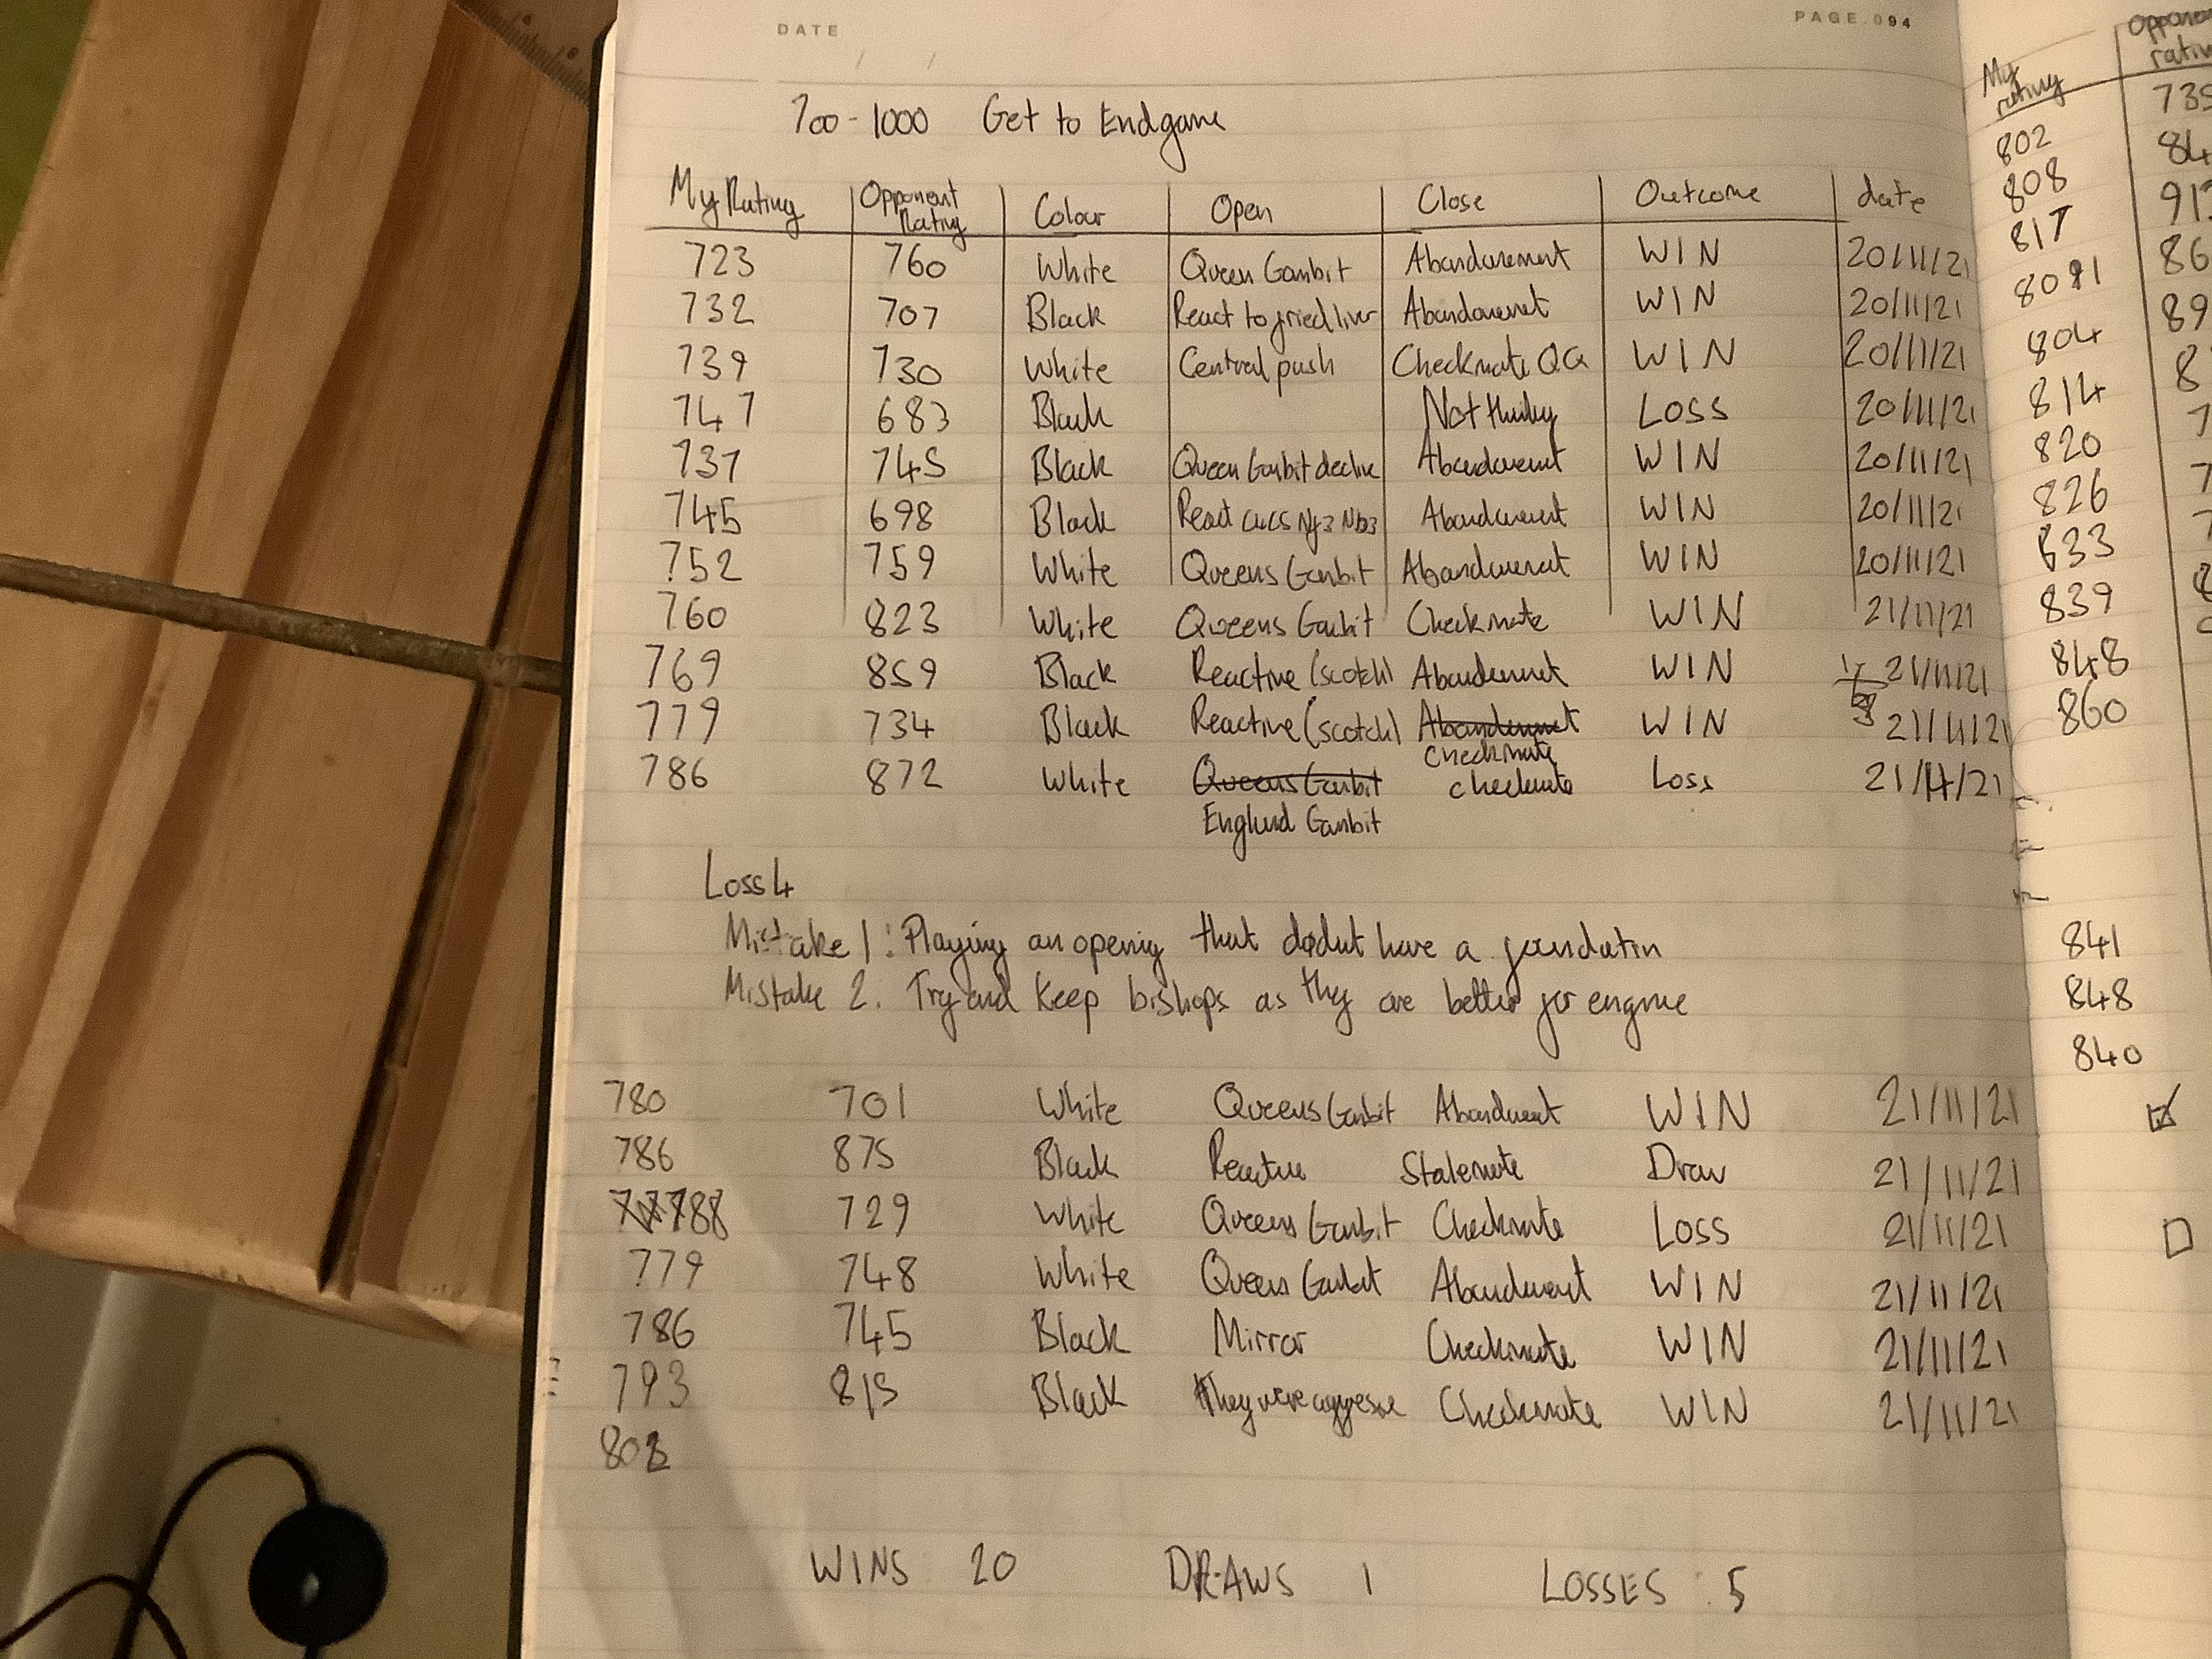 DATE / /
PAGE 094
700-1000 Get to Endgame
My Rating Opponent Rating Colour Open Close Outcome date
723 760 White Queen Gambit Abandonement WIN 20/11/21
732 707 Black React to fried liver Abandonement WIN 20/11/21
739 730 White Central push Checkmate QG WIN 20/11/21
747 683 Black Not thinking Loss 20/11/21
737 745 Black Queen Gambit decline Abandovement WIN 20/11/21
745 698 Black React Nf3 Nb3 Abandovement WIN 20/11/21
752 759 White Queens Gambit Abandovement WIN 20/11/21
760 823 White Queens Gambit Checkmate WIN 21/11/21
769 859 Black Reactive (scotch) Abandovement WIN 21/11/21
779 734 Black Reactive (scotch) Abandovmet checkmate WIN 21/11/21
786 872 White Queens Gambit checkmate Loss 21/11/21
Englund Gambit
Loss 4
Mistake 1: Playing an opening that dodnt have a foundation
Mistake 2: Try and keep bishops as they are better for engame
780 701 White Queens Gambit Abandovent WIN 21/11/21
786 875 Black Stalemate Draw 21/11/21
788 729 White Queens Gambit Checkmate Loss 21/11/21
779 748 White Queens Gambit Abandovment WIN 21/11/21
786 745 Black Mirror Checkmate WIN 21/11/21
793 815 Black They were aggresive Checkmate WIN 21/11/21
802
WINS: 20 DRAWS 1 LOSSES: 5
My rating Opponent rating
802 735
808 84
817 91
86
804 89
814 8
820
826
833
839
848
860
841
848
840